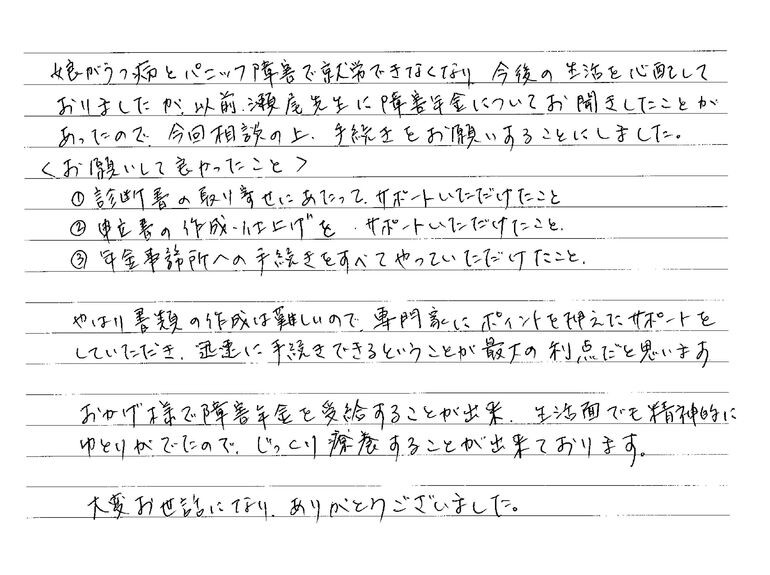 娘がうつ病とパニック障害で就労できなくなり、今後の生活を心配して
おりましたが、以前、瀬尾先生に障害年金についてお聞きしたことが
あったので、今回相談の上、手続きをお願いすることにしました。
＜お願いして良かったこと＞
① 診断書の取り寄せにあたって、サポートいただけたこと
② 申立書の作成・仕上げを、サポートいただけたこと、
③ 年金事務所への手続きをすべてやっていただけたこと、
やはり書類の作成は難しいので、専門家にポイントを押えたサポートを
していただき、迅速に手続きできるということが最大の利点だと思います
おかげ様で障害年金を受給することが出来、生活面でも精神的に
ゆとりがでたので、じっくり療養することが出来ております。
大変お世話になり、ありがとうございました。